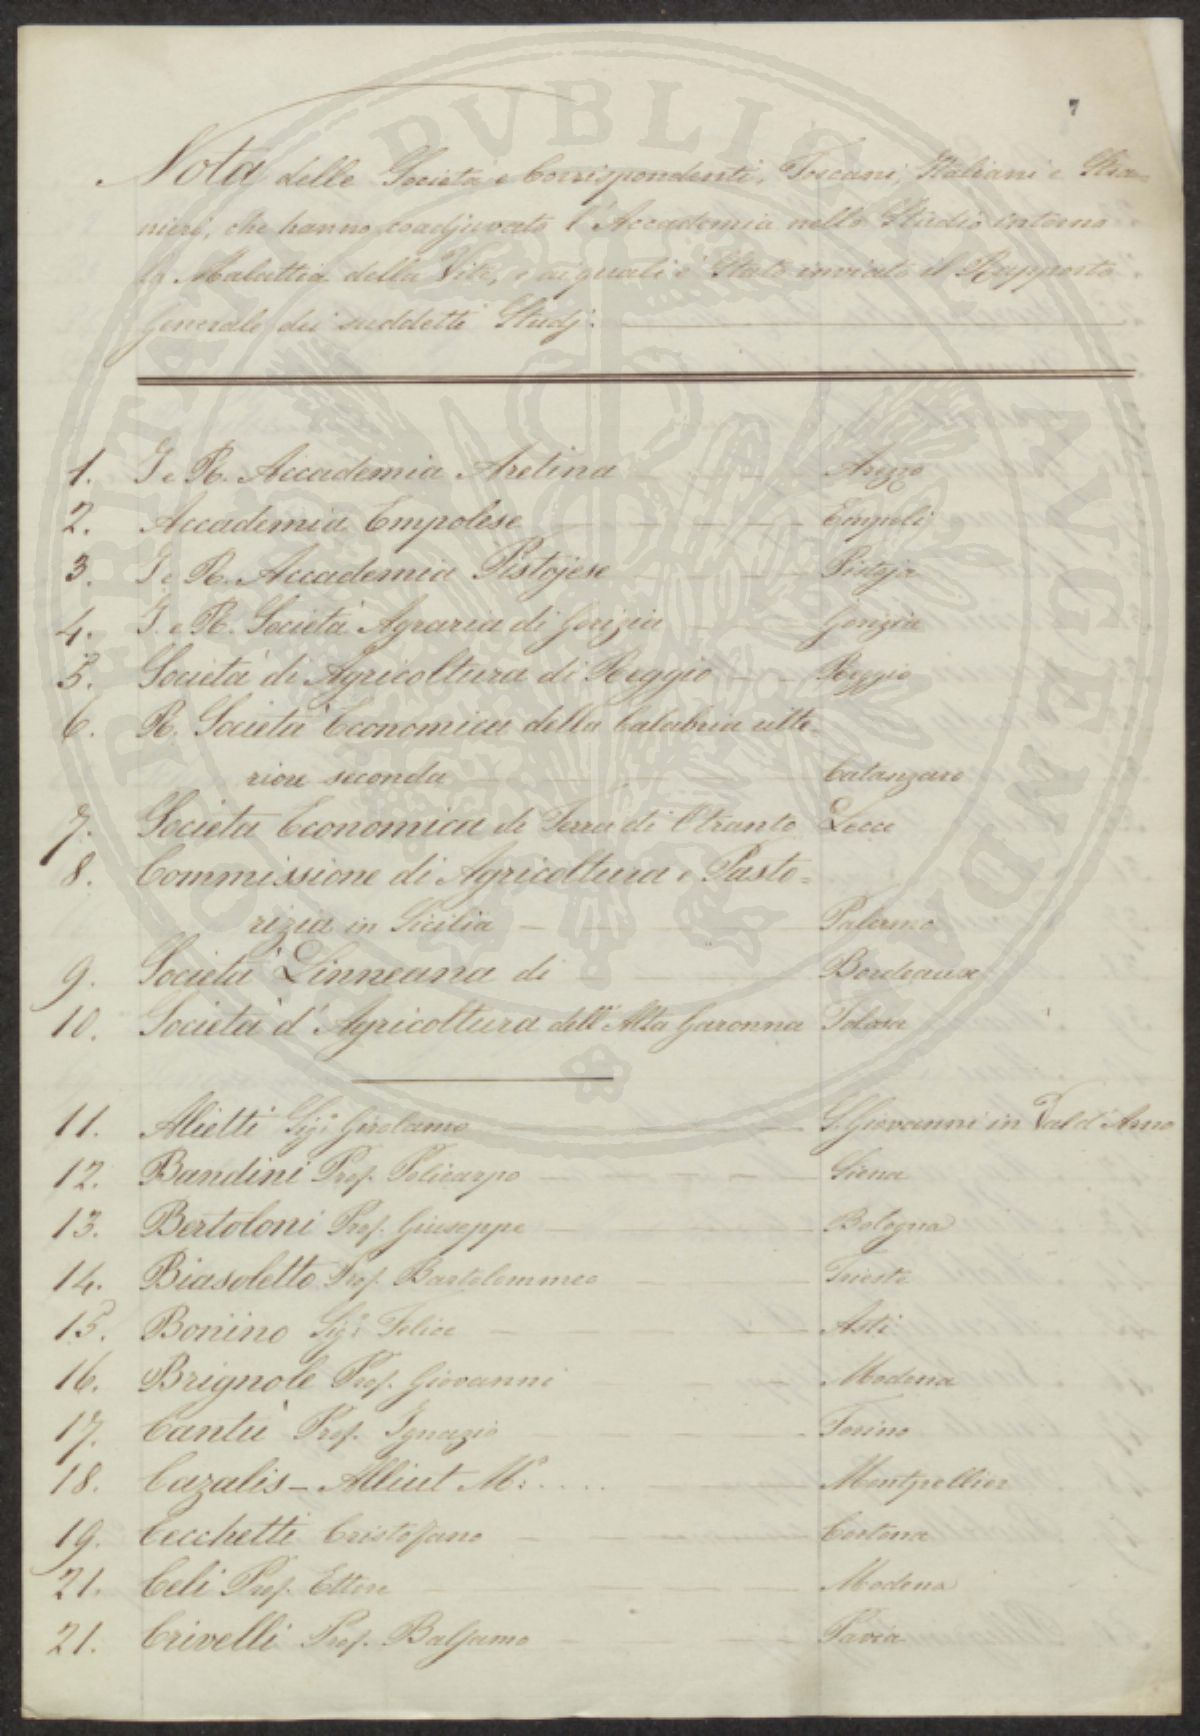 7
Nota delle Società e Corrispondenti, Toscani, Italiani e Stra=
nieri, che hanno coadjuvato l'Accademia nello Studio intorno
la Malattia della Vite, e ai quali è stato inviato il Rapporto
Generale dei suddetti Studj.
1. I. e R. Accademia Aretina Arezzo
2. Accademia Empolese Empoli
3. I. e R. Accademia Pistojese Pistoja
4. I. e R. Società Agraria di Gorizia Gorizia
5. Società di Agricoltura di Reggio Reggio
6. R. Società Economica della Calabria ulte=
riore seconda Catanzaro
7. Società Economica di Terra di Otranto Lecce
8. Commissione di Agricoltura e Pasto=
rizia in Sicilia Palermo
9. Società Linneana di Bordeaux
10. Società d'Agricoltura dell'Alta Garonna Tolosa
11. Alietti Sigr Girolamo S. Giovanni in Val d'Arno
12. Bandini Prof. Policarpo Siena
13. Bertoloni Prof. Giuseppe Bologna
14. Biasoletto Prof. Bartolommeo Trieste
15. Bonino Sigr Felice Asti
16. Brignole Prof. Giovanni Modena
17. Cantù Prof. Ignazio Torino
18. Cazalis-Alliut Mr .... Montpellier
19. Cecchetti Cristofano Cortona
21. Celi Prof. Ettore Modena
21. Crivelli Prof. Balsamo Pavia
PROSPERITATI PVBLICAE AVGENDAE